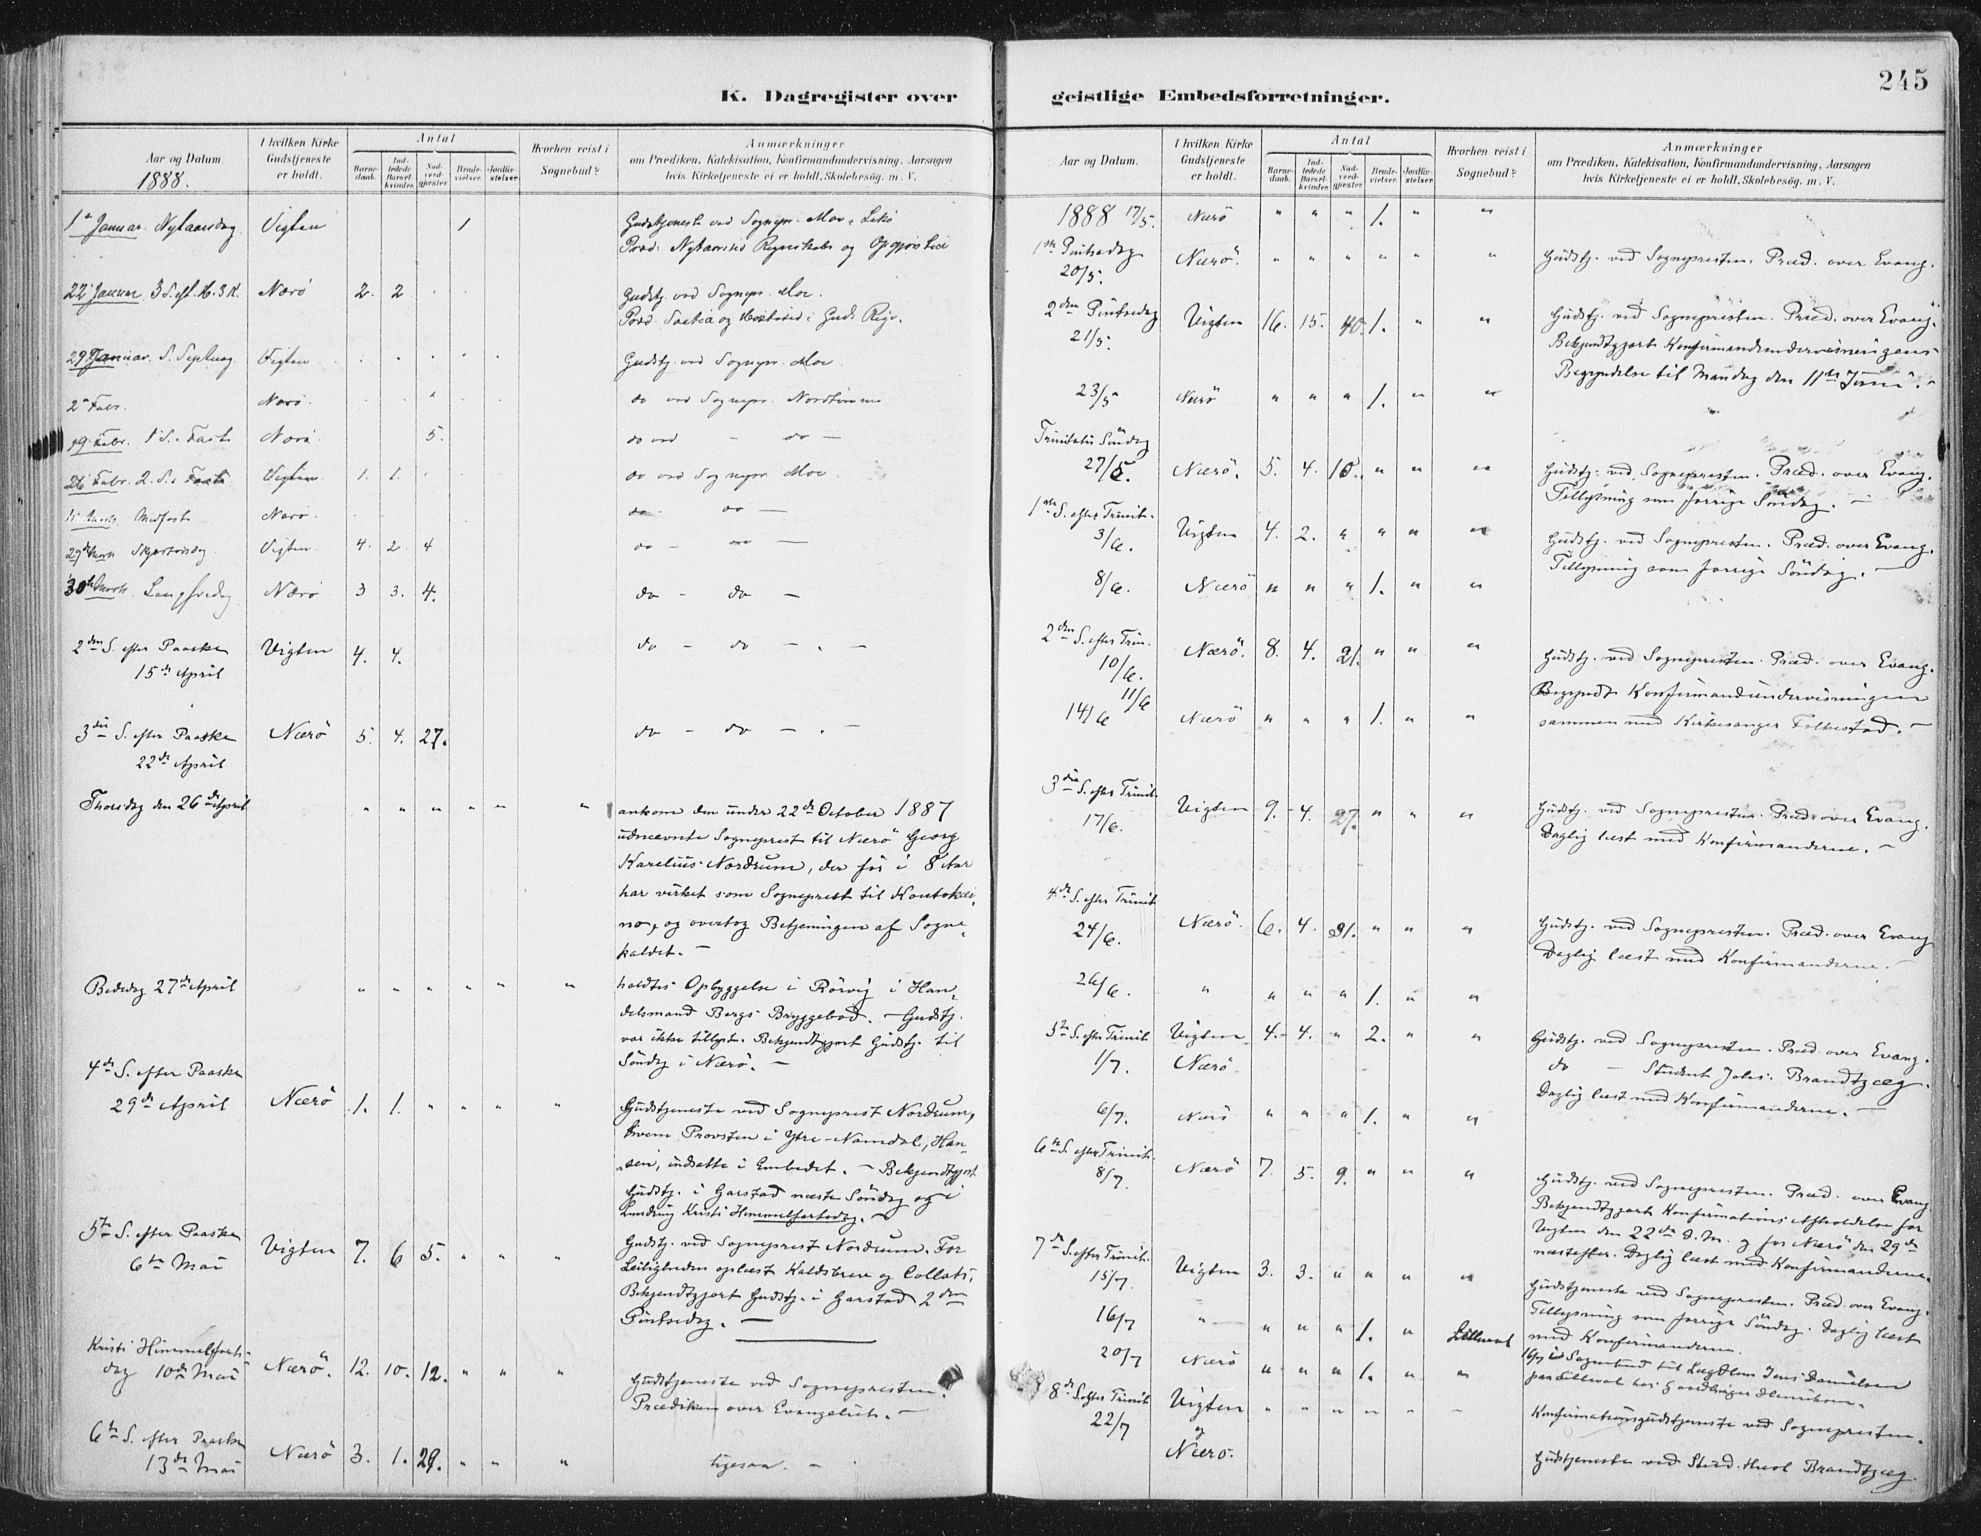 K. Dagregister over
Aar og Datum.
1888.
I hvilken Kirke Gudstjeneste er holdt.
Antal
Barnedaab.
Indledede Barselkvinder.
Nadverdgjester.
Brudevielser.
Jordfæstelser.
Hvorhen reist i Sognebud?
Anmærkninger
om Prædiken, Katekisation, Konfirmandundervisning, Aarsagen
hvis Kirketjeneste ei er holdt, Skolebesøg. m. V.
1ste Januar. Nytaarsdag Vigten 1 Gudstjeneste ved Sognepr. Moe,
22 Januar 3 S. Nærö 2. 2 Gudstj. ved Sognepr. Moe.
29 Januar. S. Septuag. Vigten Gudstj. ved Sognepr. Moe
2 Febr. Nærö. do ved Sognepr.
19 Febr. 1 S. i Faste Nærö 5. do ved — do —
26 Febr. 2. S. i Faste Vigten 1. 1. do ved Sognepr. Moe.
Marts Midfaste Nærö. do — do —
29de Marts Skjærtorsdag Vigten 4. 2 4 do — do —
30te Marts Langfredag Nærö 3 3. 4. do — do —
2den S. efter Paaske Vigten 4. 4. do — do — . —
15de April
3die S. efter Paaske Nærö 5. 4. 27. do — do — . —
22de April
Thorsdag den 26de April " " " " " " ankom den under 22de October 1887
udnævnte Sogneprest til Nærö Georg
Karelius Nordrum, der för i 8 Aar
har virket som Sogneprest til Koutokei-
no, og overtog Betjeningen af Sogne-
kaldet. —
Bededag 27de April " " " " " " holdtes Opbyggelse i Rörvig i Han-
delsmand Bergs Bryggebod. — Gudstj.
var ikke tillyst. Bekjendtgjort Gudstj. til
Söndag i Nærö. —
4de S. efter Paaske
29de April Nærö 1. 1. " " " " Gudstjeneste ved Sogneprest Nordrum,
hvem Provsten i Ytre-Namdal, Han-
sen, indsatte i Embedet. — Bekjendtgjort
Gudstj. i Garstad næste Söndag og i
Kristi Himmelfartsdag. —
5te S. efter Paaske Vigten 7. 6 5. " " " Gudstj. ved Sogneprest Nordrum. For
6te Mai Leiligheden oplæst Kaldsbrev og Collats,
Bekjendtgjort Gudstj. i Garstad 2den
Pintsedag. —
Kristi Himmelfarts-
dag 10de Mai Nærö. 12. 10. 12. " " " Gudstjeneste ved Sognepresten.
Prædiken over Evangeliet. —
6te S. efter Paaske
13de Mai Nærö 3. 1. 29. " " " ligesaa. —
geistlige Embedsforretninger.
245
Aar og Datum.
I hvilken Kirke Gudstjeneste er holdt.
Antal
Barnedaab.
Indledede Barselkvinder.
Nadverdgjester.
Brudevielser.
Jordfæstelser.
Hvorhen reist i Sognebud?
Anmærkninger
om Prædiken, Katekisation, Konfirmandundervisning, Aarsagen
hvis Kirketjeneste ei er holdt, Skolebesøg. m. V.
1888 17/5. Nærö " " " 1. " "
1ste Pintsedag
20/5. Nærö. " " " " " " Gudstj. ved Sognepresten. Præd. over Evang.
2den Pintsedag Vigten 16. 15. 40. 1. " " Gudstj. ved Sognepresten. Præd. over Evang.
21/5. Bekjendtgjort Konfirmandundervisningens
Begyndelse til Mandag den 11te Juni. —
23/5 Nærö " " " 1. " "
Trinitatis Söndag
27/5. Nærö. 5. 4. 10. " " " Gudstj. ved Sognepresten. Præd. over Evang.
Tillysning som forrige Söndag. —
1ste S. efter Trinit.
3/6. Vigten 4. 2. " " " " Gudstj. ved Sognepresten. Præd. over Evang.
Tillysning som forrige Söndag. —
8/6. Nærö " " " 1. " "
2den S. efter Trin.
10/6. Nærö. 8. 4. 21. " " " Gudstj. ved Sognepresten. Præd. over Evang.
11/6 Begyndt Konfirmandundervisningen
14/6 Nærö " " " 1. " " sammen med Kirkesanger Folkestad. —
3die S. efter Trinit. Vigten 9. 4. 27. " " " Gudstj. ved Sognepresten. Præd. over Evang.
17/6. Daglig læst med Konfirmanderne. —
4de S. efter Trinit.
24/6. Nærö. 6. 4. 31. " " " Gudstj. ved Sognepresten. Præd. over Evang
Daglig læst med Konfirmanderne. —
26/6. " " " " 1. " "
5te S. efter Trinit. Vigten 4. 4. " 2. " " Gudstj. ved Sognepresten. Præd. over Evang.
1/7. Nærö do — Student Johs. Brandtzæg.
Daglig læst med Konfirmanderne. —
6/7. Nærö " " " 1. " "
6te S. efter Trinit.
8/7. Nærö 7. 5. 9. " " " Gudstj. ved Sognepresten. Præd. over Evang
Bekjendtgjort Konfirmations Afholdelse for
Vigten den 22de d. M. og for Nærö den 29de
næstefter. Daglig læst med Konfirmanderne.
7de S. efter Trinit.
15/7. Vigten 3. 3. " " " " Gudstjeneste ved Sognepresten. Præd. over Evang.
Tillysning som forrige Söndag. Daglig læst
16/7 " " " " 1. " med Konfirmanderne.
20/7 Nærö " " " 1. " " 16/7 i Sognebud til Jens Danielsen
8de S. efter Trinit. Vigten " " " " " "
22/7 og Konfirmationsgudstjeneste ved Sognepresten.
Nærö. Gudstjeneste ved Stud. theol Brandtzæg.